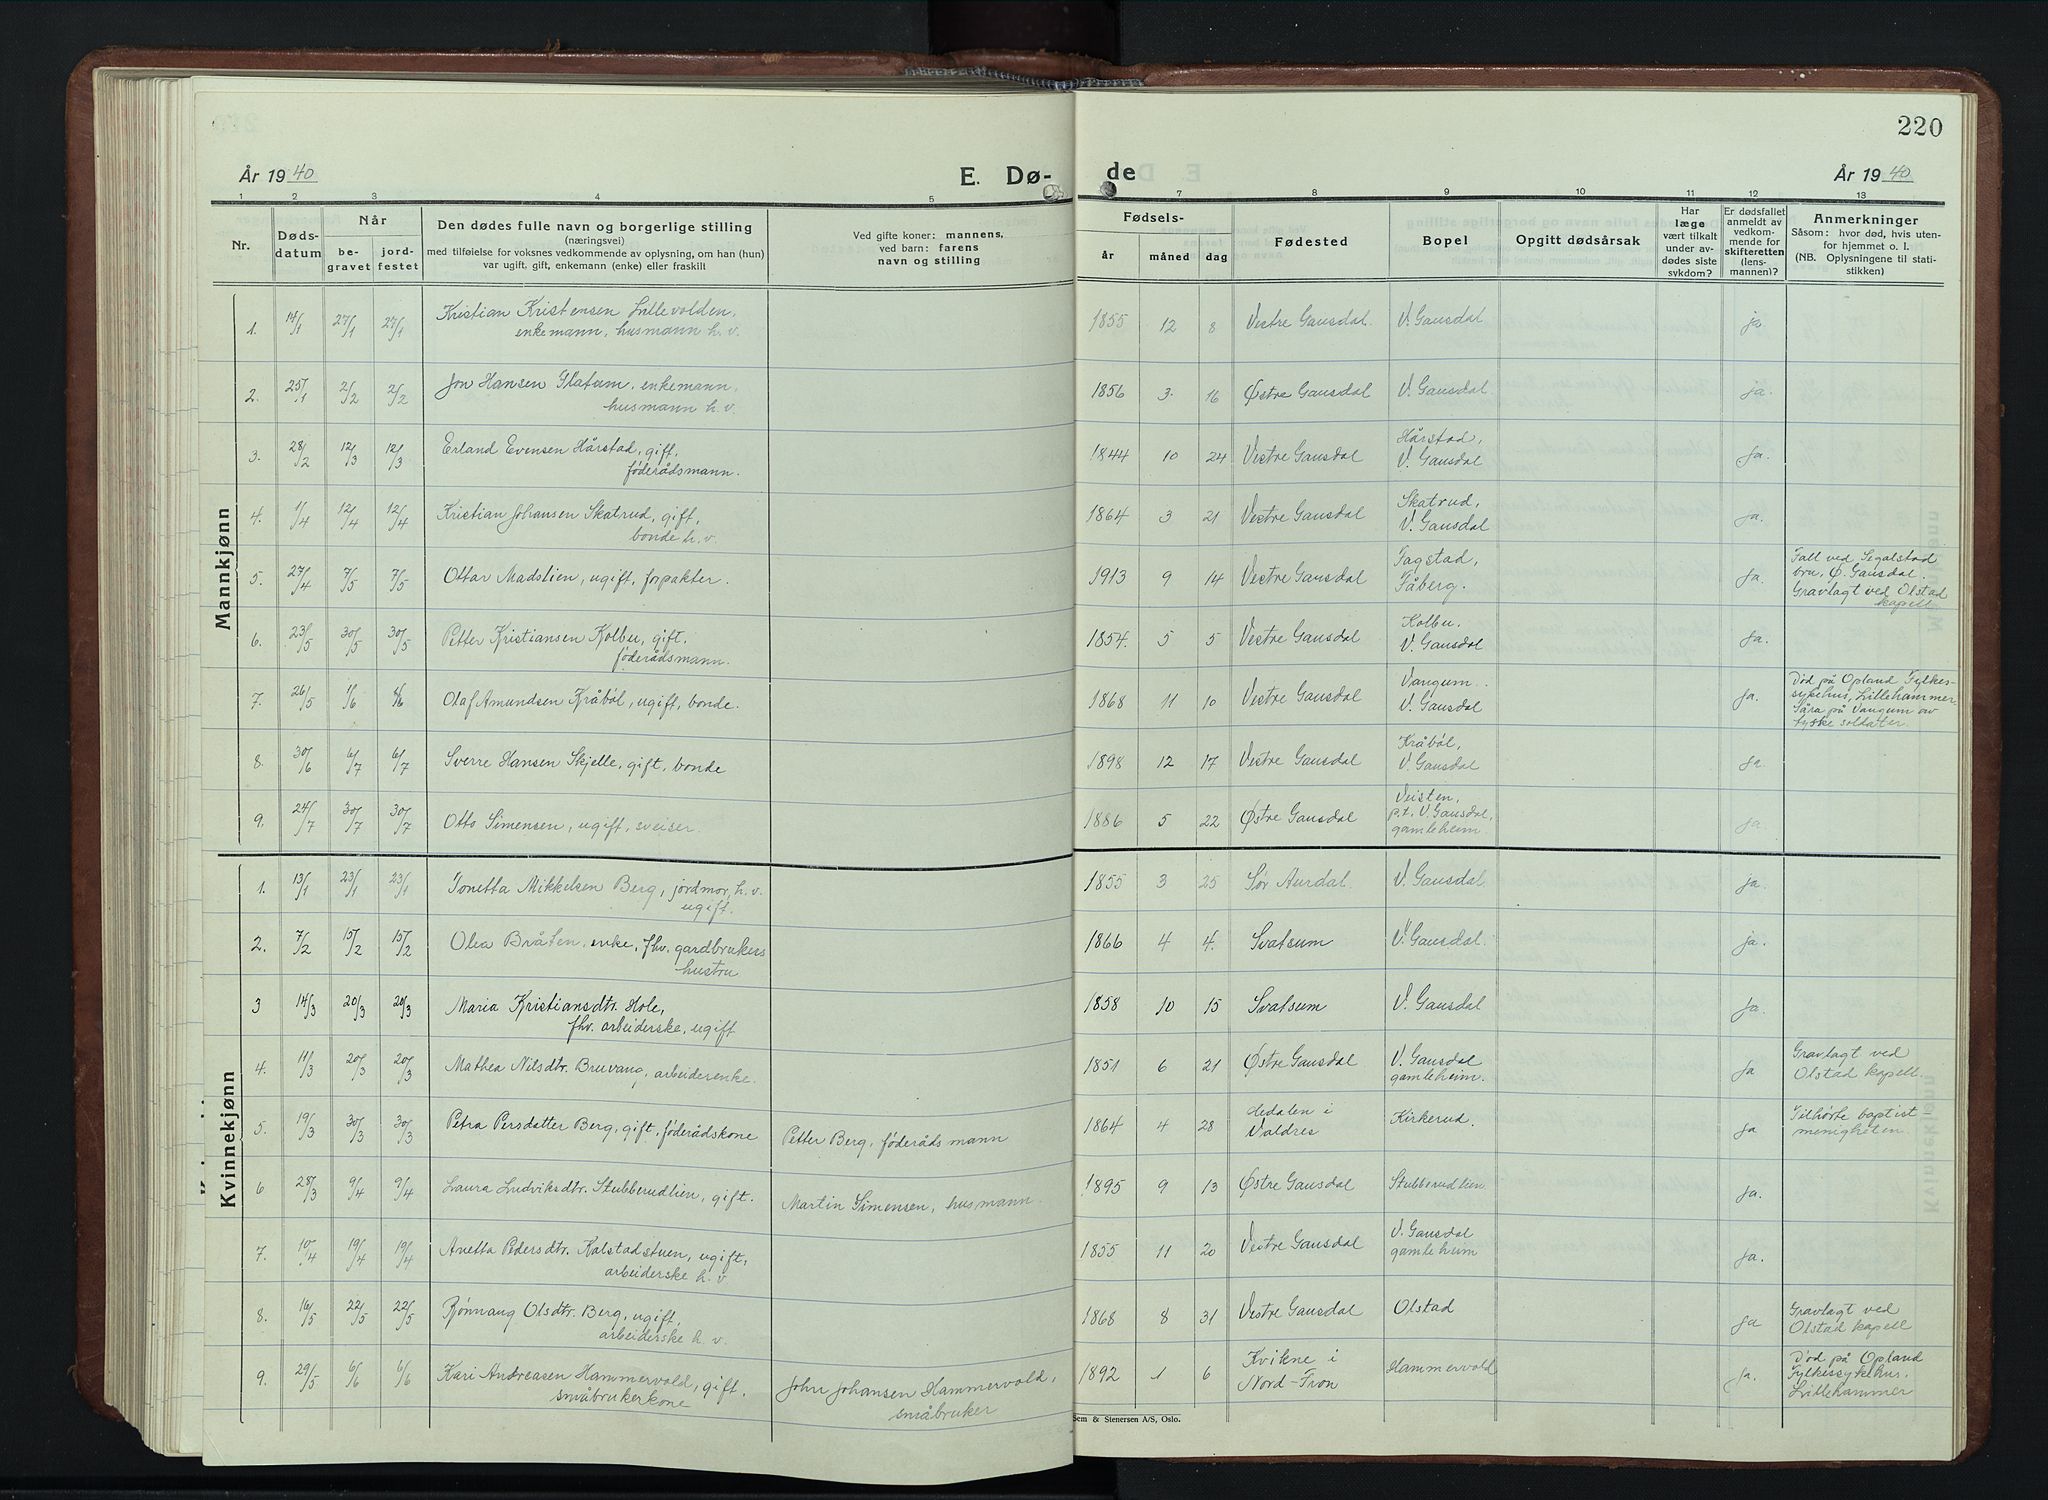 220
År 1940
E. Dø-
de
År 1940
1 2 3 4 5 7 8 9 10 11 12 13
Nr.
Døds-
datum
Når
be-
gravet
jord-
festet
Den dødes fulle navn og borgerlige stilling
(næringsvei)
med tilføielse for voksnes vedkommende av oplysning, om han (hun)
var ugift, gift, enkemann (enke) eller fraskilt
Ved gifte koner: mannens,
ved barn: farens
navn og stilling
Fødsels-
år måned dag
Fødested
Bopel
Opgitt dødsårsak
Har
læge
vært tilkalt
under av-
dødes siste
sykdom?
Er dødsfallet
anmeldt av
vedkom-
mende for
skifteretten
(lens-
mannen)?
Anmerkninger
Såsom: hvor død, hvis uten-
for hjemmet o. l.
(NB. Oplysningene til stati-
stikken)
Mannkjønn
1. 14/1 27/1 27/1 Kristian Kristensen Lillevolden, 1855 12 8 Vestre Gausdal. V. Gausdal ja
enkemann, husmann h. v.
2. 25/1 2/2 2/2 Jon Hansen Flatum, enkemann, 1856 3. 16 Østre Gausdal V. Gausdal ja.
husmann h. v.
3. 28/2 12/3 12/3 Erland Evensen Hårstad, gift, 1844 10 24 Vestre Gausdal Hårstad, Ja.
føderådsmann. V. Gausdal
4. 1/4 12/4 12/4 Kristian Johansen Skatrud, gift, 1864 3 21 Vestre Gausdal Skatrud, ja.
bonde h. v. V. Gausdal
5. 27/4 7/5 7/5 Ottar Madslien, ugift, forpakter. 1913 9 14 Vestre Gausdal Fagstad, Ja. Falt ved Segalstad
Fåberg. bru, Ø. Gausdal.
Gravlagt ved Olstad
kapell
6. 23/5 30/5 30/5 Petter Kristiansen Kolbu, gift, 1854. 5 5 Vestre Gausdal Kolbu, Ja.
føderådsmann. V. Gausdal
7. 26/5 1/6 Olaf Amundsen Kråbøl, ugift, bonde. 1868 11 10 Vestre Gausdal Vangum. Ja. Død på Opland Fylkes-
V. Gausdal sykehus, Lillehammer
Såra på Vangum av
tyske soldater.
8. 30/6 6/7 6/7 Sverre Hansen Skjelle, gift, bonde 1898 12 17 Vestre Gausdal Kråbøl, ja.
V. Gausdal
9. 24/7 30/7 30/7 Otto Simensen, ugift, sveiser. 1886 5 22 Østre Gausdal Veisten, Ja.
p.t. V. Gausdal,
gamleheim
Kvinnekjønn
1. 13/1 23/1 23/1 Jonetta Mikkelsen Berg, jordmor, h. v. 1855 3 25 Sør Aurdal. V. Gausdal ja.
ugift.
2. 7/2 15/2 15/2 Olea Bråten, enke, fhv. gardbrukers 1866 4 4. Svatsum V. Gausdal. ja.
hustru
3 14/3 20/3 20/3 Maria Kristiansdtr. Hole, 1858 10 15 Svatsum V. Gausdal Ja.
fhv. arbeiderske, ugift
4. 11/3 20/3 20/3 Mathea Nilsdtr. Bruvang, arbeiderenke. 1851 6 21 Østre Gausdal V. Gausdal Ja Gravlagt ved
gamleheim. Olstad kapell.
5. 19/3 30/3 30/3 Petra Persdatter Berg, gift, føderådskone Petter Berg, føderådsmann 1864 4 28 Hedalen i Kirkerud. Ja Tilhørte baptist
Valdres menigheten.
6 28/3 9/4 9/4 Laura Ludviksdtr. Stubberudlien, gift. Martin Simensen, husmann. 1895 9 13 Østre Gausdal Stubberudlien Ja.
7. 10/4 19/4 19/4 Anetta Pedersdtr. Kalstadstuen, ugift, 1855 11 20 Vestre Gausdal V. Gausdal Ja.
arbeiderske h. v. gamleheim
8. 16/5 22/5 22/5 Rønnaug Olsdtr. Berg, ugift, 1868 8 31 Vestre Gausdal Olstad Ja Gravlagt ved
arbeiderske h. v. Olstad kapell
9. 29/5 6/6 6/6 Kari Andreasen Hammervold, gift, John Johansen Hammervold, 1892 1 6 Kvikne i Hammervold Ja. Død på Opland
småbrukerkone småbruker Nord-Fron Fylkessykehus,
Lillehammer
Sem & Stenersen A/S, Oslo.